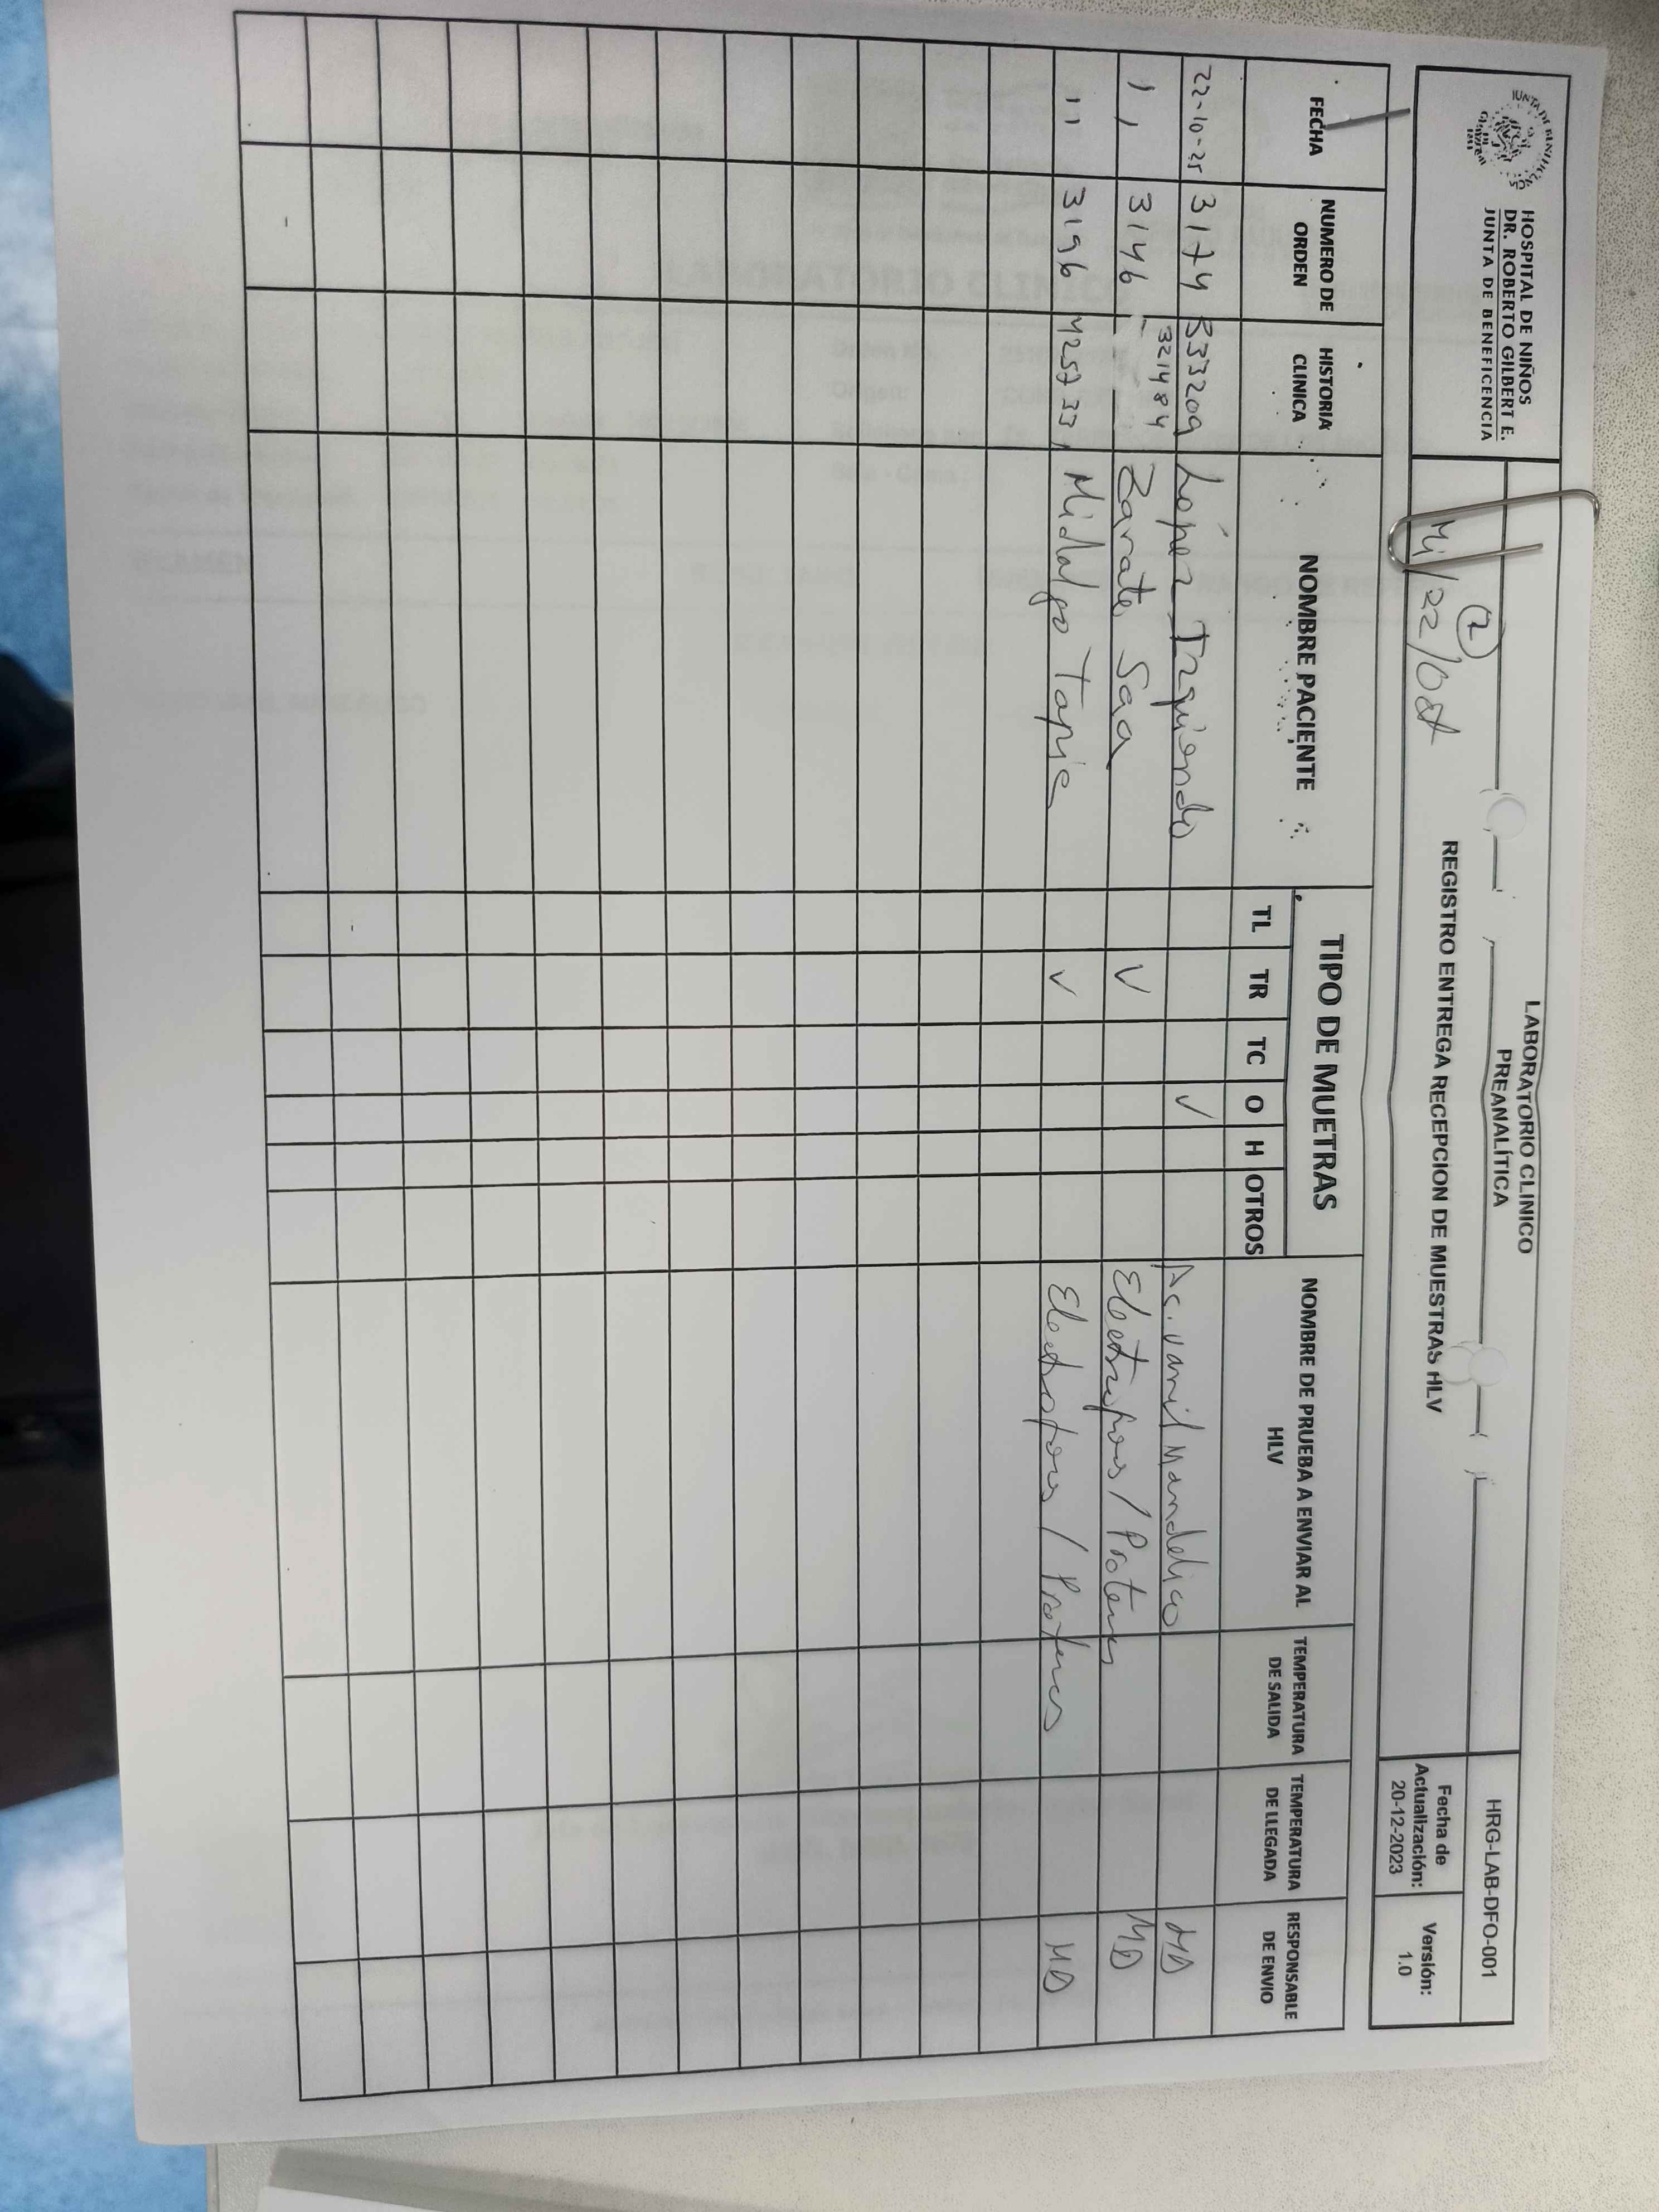 JUNTA DE BENEFICENCIA DE GUAYAQUIL
HOSPITAL DE NIÑOS
DR. ROBERTO GILBERT E.
JUNTA DE BENEFICENCIA
LABORATORIO CLINICO
PREANALÍTICA
REGISTRO ENTREGA RECEPCION DE MUESTRAS HLV
HRG-LAB-DFO-001
Fecha de
Actualización:
20-12-2023
Versión:
1.0
2
Mi/22/Oct
FECHA
NUMERO DE
ORDEN
HISTORIA
CLINICA
NOMBRE PACIENTE
TIPO DE MUETRAS
TL TR TC O H OTROS
NOMBRE DE PRUEBA A ENVIAR AL
HLV
TEMPERATURA
DE SALIDA
TEMPERATURA
DE LLEGADA
RESPONSABLE
DE ENVIO
22-10-25 3174 533209 López Izquierdo ✓ Ac. Vanil Mandelico MD
11 3146 321484 Zarate Saa ✓ / MD
11 3196 425733 Tapia ✓ / MD
LABORATORIO CLINICO